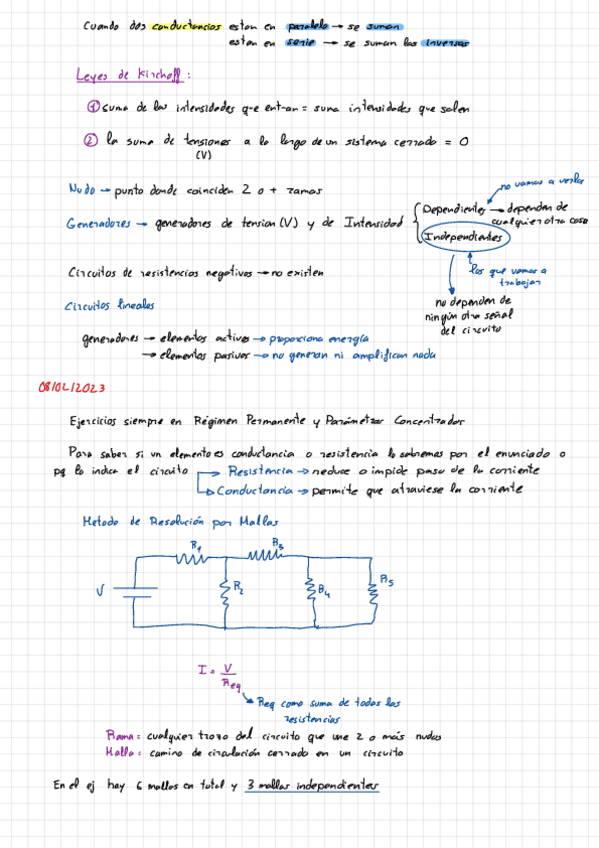 Cuando dos conductancias estan en paralelo → se suman
estan en serie → se suman las inversas
Leyes de Kirchoff:
① suma de las intensidades que entran = suma intensidades que salen
② la suma de tensiones a lo largo de un sistema cerrado = 0
(V)
Nudo → punto donde coinciden 2 o + ramas
no vamos a verla
Generadores → generadores de tension (V) y de Intensidad
Dependientes → dependen de
cualquier otra cosa
Independientes
los que vamos a
trabajar
Circuitos de resistencias negativos → no existen
no dependen de
ningún otra señal
del circuito
Circuitos lineales
generadores → elementos activos → proporciona energía
→ elementos pasivos → no generan ni amplifican nada
08/02/2023
Ejercicios siempre en Régimen Permanente y Parámetros Concentrados
Para saber si un elemento es conductancia o resistencia lo sabremos por el enunciado o
pq lo indica el circuito
Resistencia → reduce o impide paso de la corriente
Conductancia → permite que atraviese la corriente
Metodo de Resolución por Mallas
R1
R3
V
R2
R4
R5
I = V
Req
Req como suma de todas las
resistencias
Rama: cualquier trozo del circuito que une 2 o más nudos
Malla: camino de circulación cerrado en un circuito
En el ej hay 6 mallas en total y 3 mallas independientes